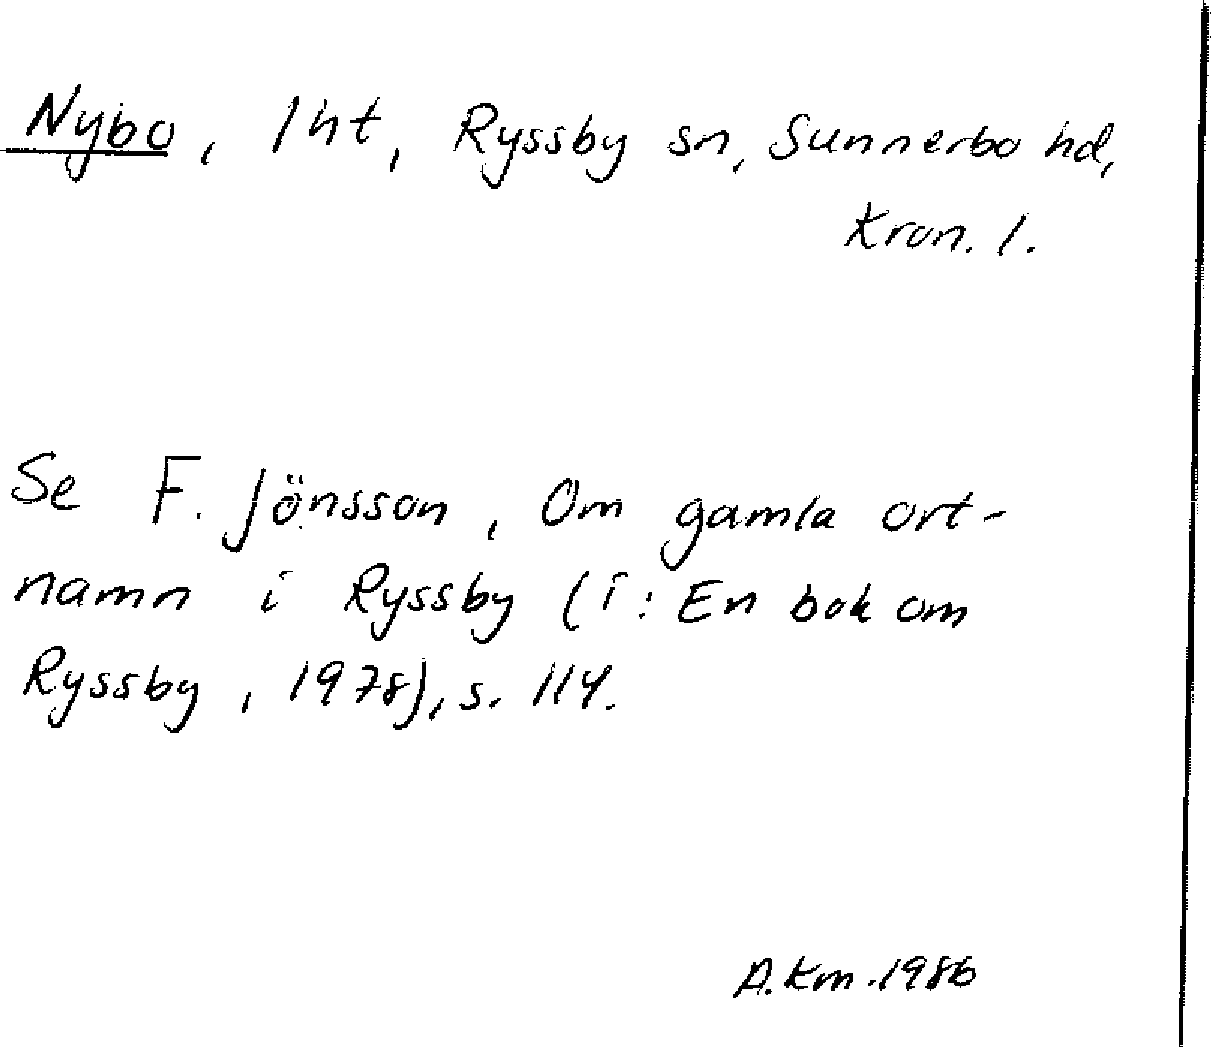 Nybo, lht, Ryssby sn, Sunnerbo hd,
Kron. l.
Se F. Jönsson, Om gamla ort-
namn i Ryssby (i: En bok om
Ryssby, 1978), s. 114.
A. Km. 1986